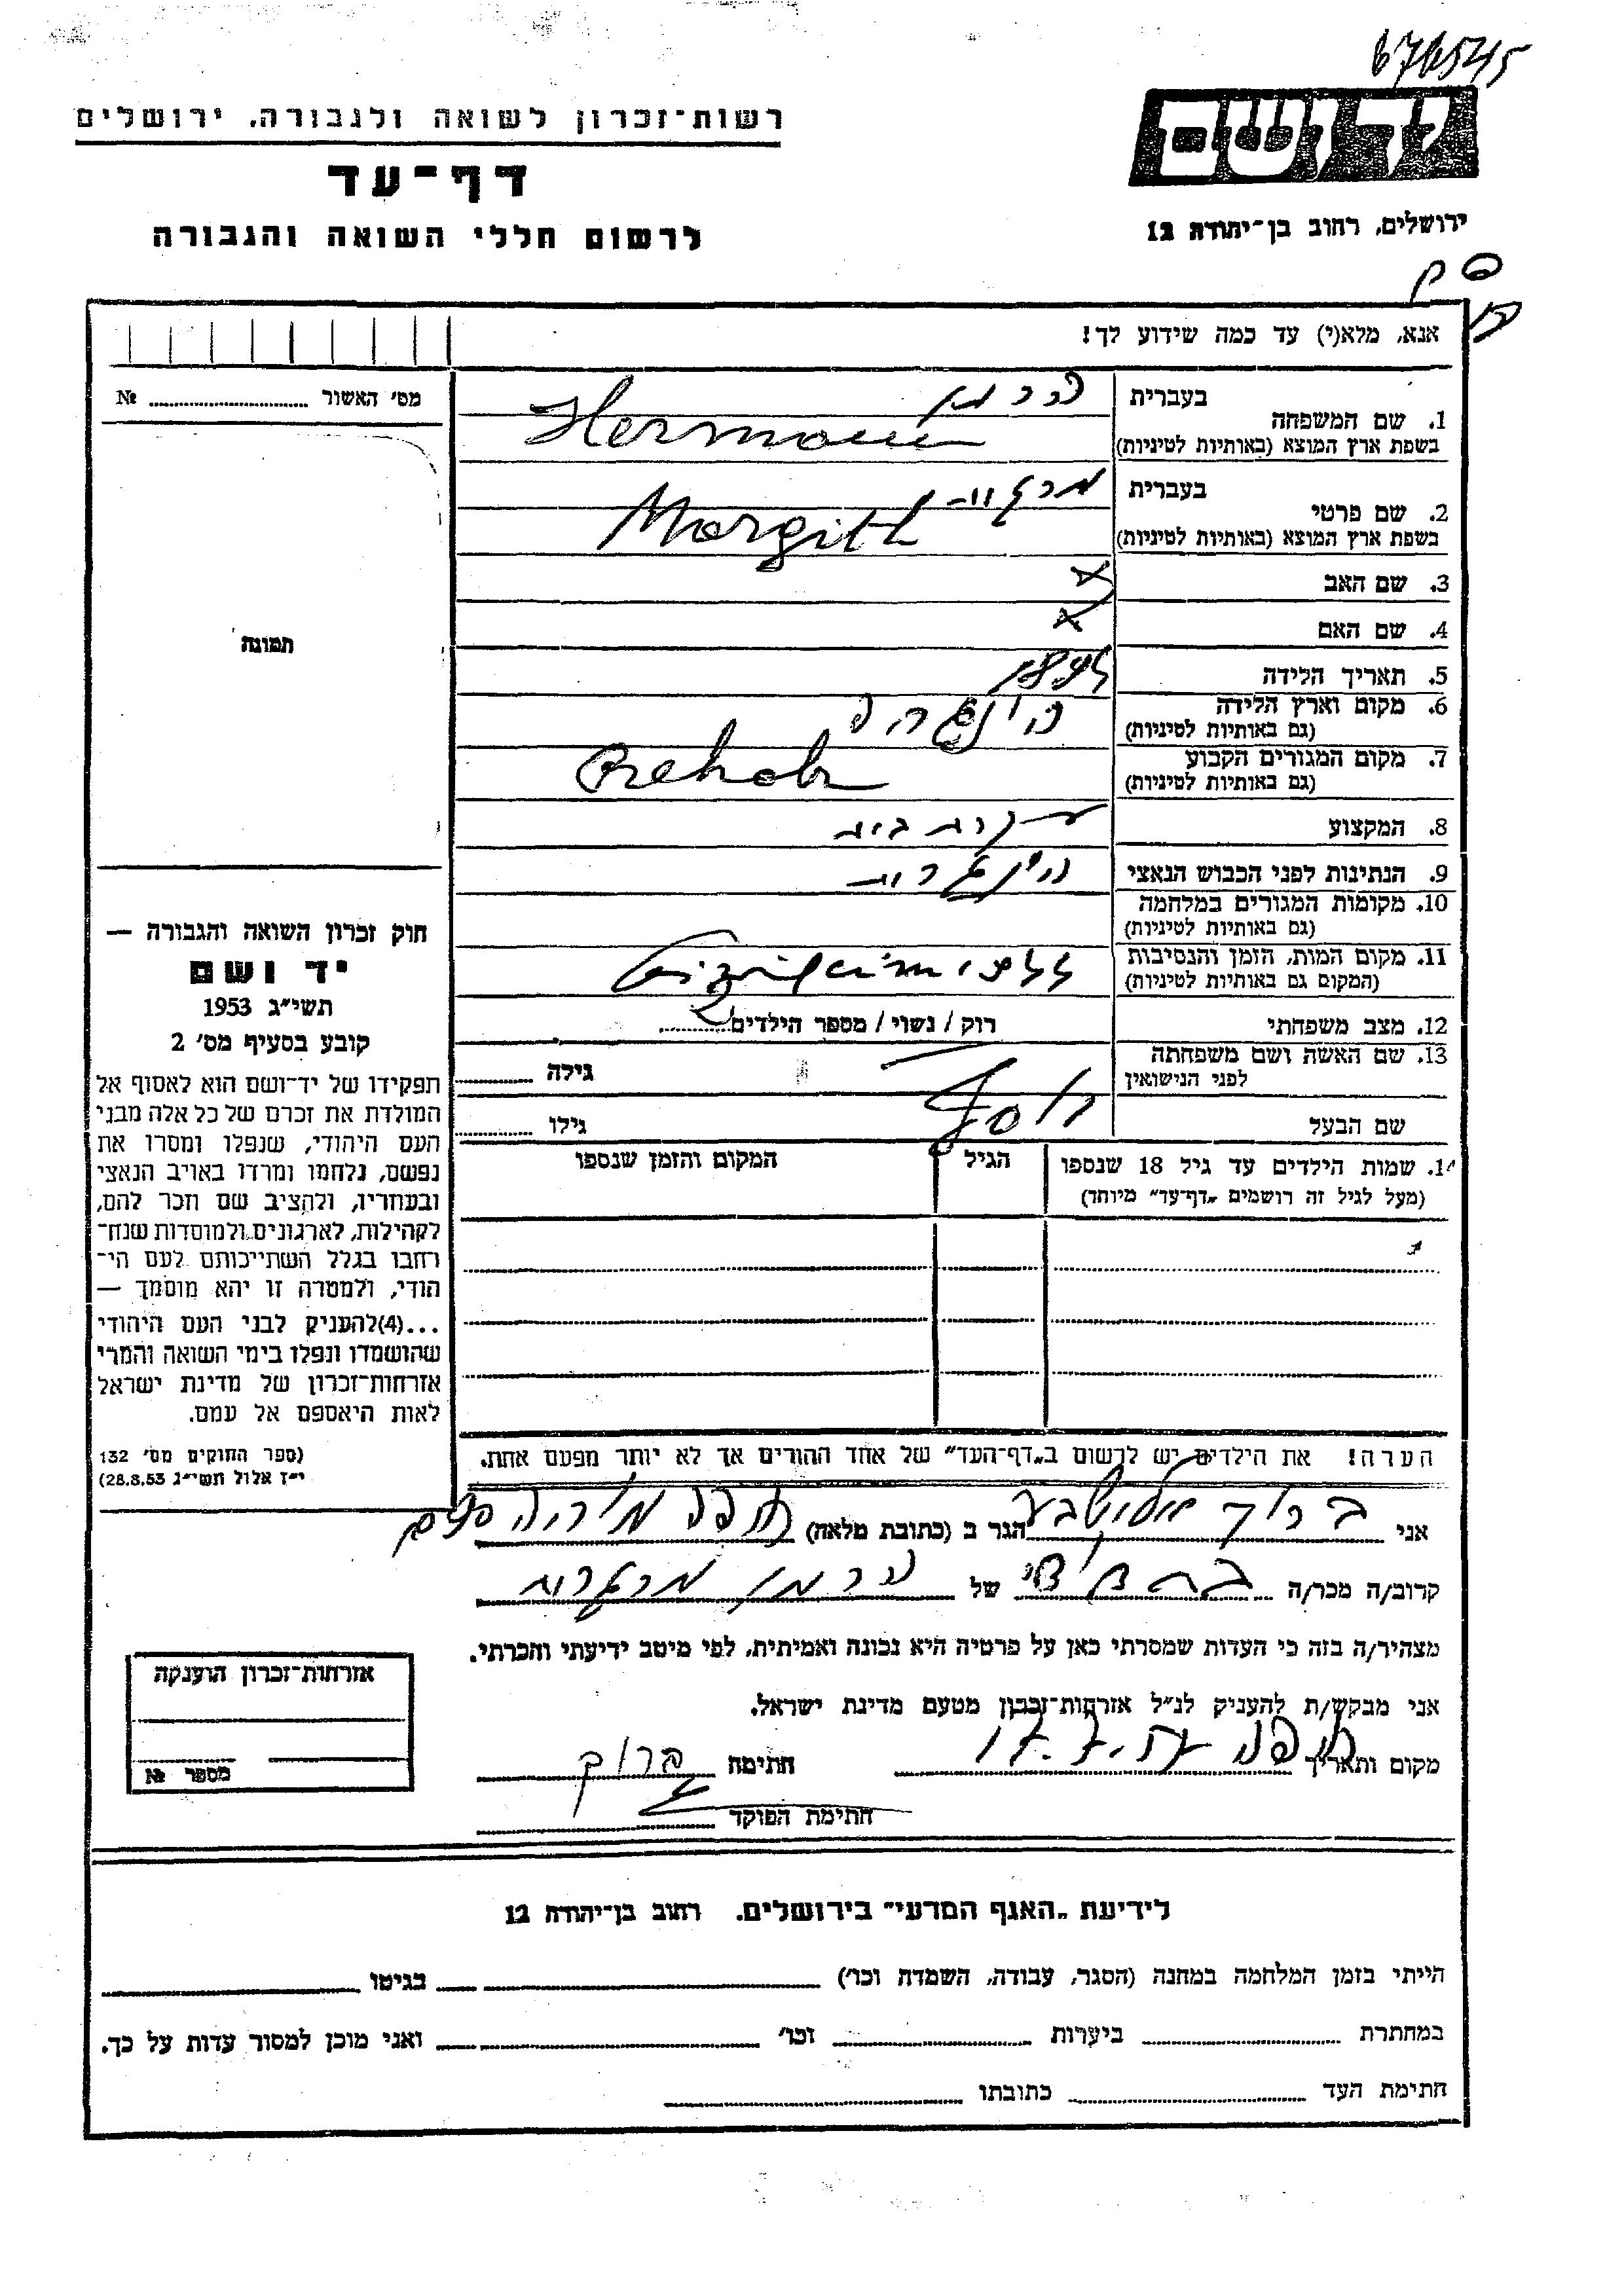 676545
רשות־זכרון לשואה ולגבורה, ירושלים
דף־עד
לרשום חללי השואה והגבורה
ידושם
ירושלים, רחוב בן־יהודה 12
אנא, מלא(י) עד כמה שידוע לך!
מס׳ האשור № 
1. שם המשפחה
בעברית הרמן
בשפת ארץ המוצא (באותיות לטיניות) Hermann
2. שם פרטי
בעברית מרגיט
בשפת ארץ המוצא (באותיות לטיניות) Margith
3. שם האב x
4. שם האם x
5. תאריך הלידה
6. מקום וארץ הלידה
(גם באותיות לטיניות) הונגריה
7. מקום המגורים הקבוע
(גם באותיות לטיניות)
8. המקצוע עקרת בית
9. הנתינות לפני הכבוש הנאצי הונגרית
10. מקומות המגורים במלחמה
(גם באותיות לטיניות)
11. מקום המות, הזמן והנסיבות
(המקום גם באותיות לטיניות) אושויץ
12. מצב משפחתי רוק / נשוי / מספר הילדים 2
13. שם האשה ושם משפחתה
לפני הנישואין גילה
שם הבעל יוסף גילו
14. שמות הילדים עד גיל 18 שנספו
(מעל לגיל זה רושמים „דף־עד״ מיוחד)
הגיל
המקום והזמן שנספו
תמונה
חוק זכרון השואה והגבורה —
יד ושם
תשי״ג 1953
קובע בסעיף מס׳ 2
תפקידו של יד־ושם הוא לאסוף אל
המולדת את זכרם של כל אלה מבני
העם היהודי, שנפלו ומסרו את
נפשם, נלחמו ומרדו באויב הנאצי
ובעוזריו, ולהציב שם וזכר להם,
לקהילות, לארגונים ולמוסדות שנח־
רבו בגלל השתייכותם לעם הי־
הודי, ולמטרה זו יהא מוסמך —
...(4)להעניק לבני העם היהודי
שהושמדו ונפלו בימי השואה והמרי
אזרחות־זכרון של מדינת ישראל
לאות היאספם אל עמם.
(ספר החוקים מס׳ 132
י״ז אלול תשי״ג 28.8.53)
הערה! את הילדים יש לרשום ב„דף־העד״ של אחד ההורים אך לא יותר מפעם אחת.
אני ברוך אלישבע הגר ב (כתובת מלאה) חיפה
קרוב/ה מכר/ה של הרמן מרגרית
מצהיר/ה בזה כי העדות שמסרתי כאן על פרטיה היא נכונה ואמיתית, לפי מיטב ידיעתי והכרתי.
אני מבקש/ת להעניק לנ״ל אזרחות־זכרון מטעם מדינת ישראל.
מקום ותאריך חיפה חתימה ברוך
חתימת הפוקד
אזרחות־זכרון הוענקה
מספר №
לידיעת „האגף המדעי״ בירושלים, רחוב בן־יהודה 12
הייתי בזמן המלחמה במחנה (הסגר, עבודה, השמדה וכו׳) בגיטו
במחתרת ביערות וכו׳ ואני מוכן למסור עדות על כך.
חתימת העד כתובתו